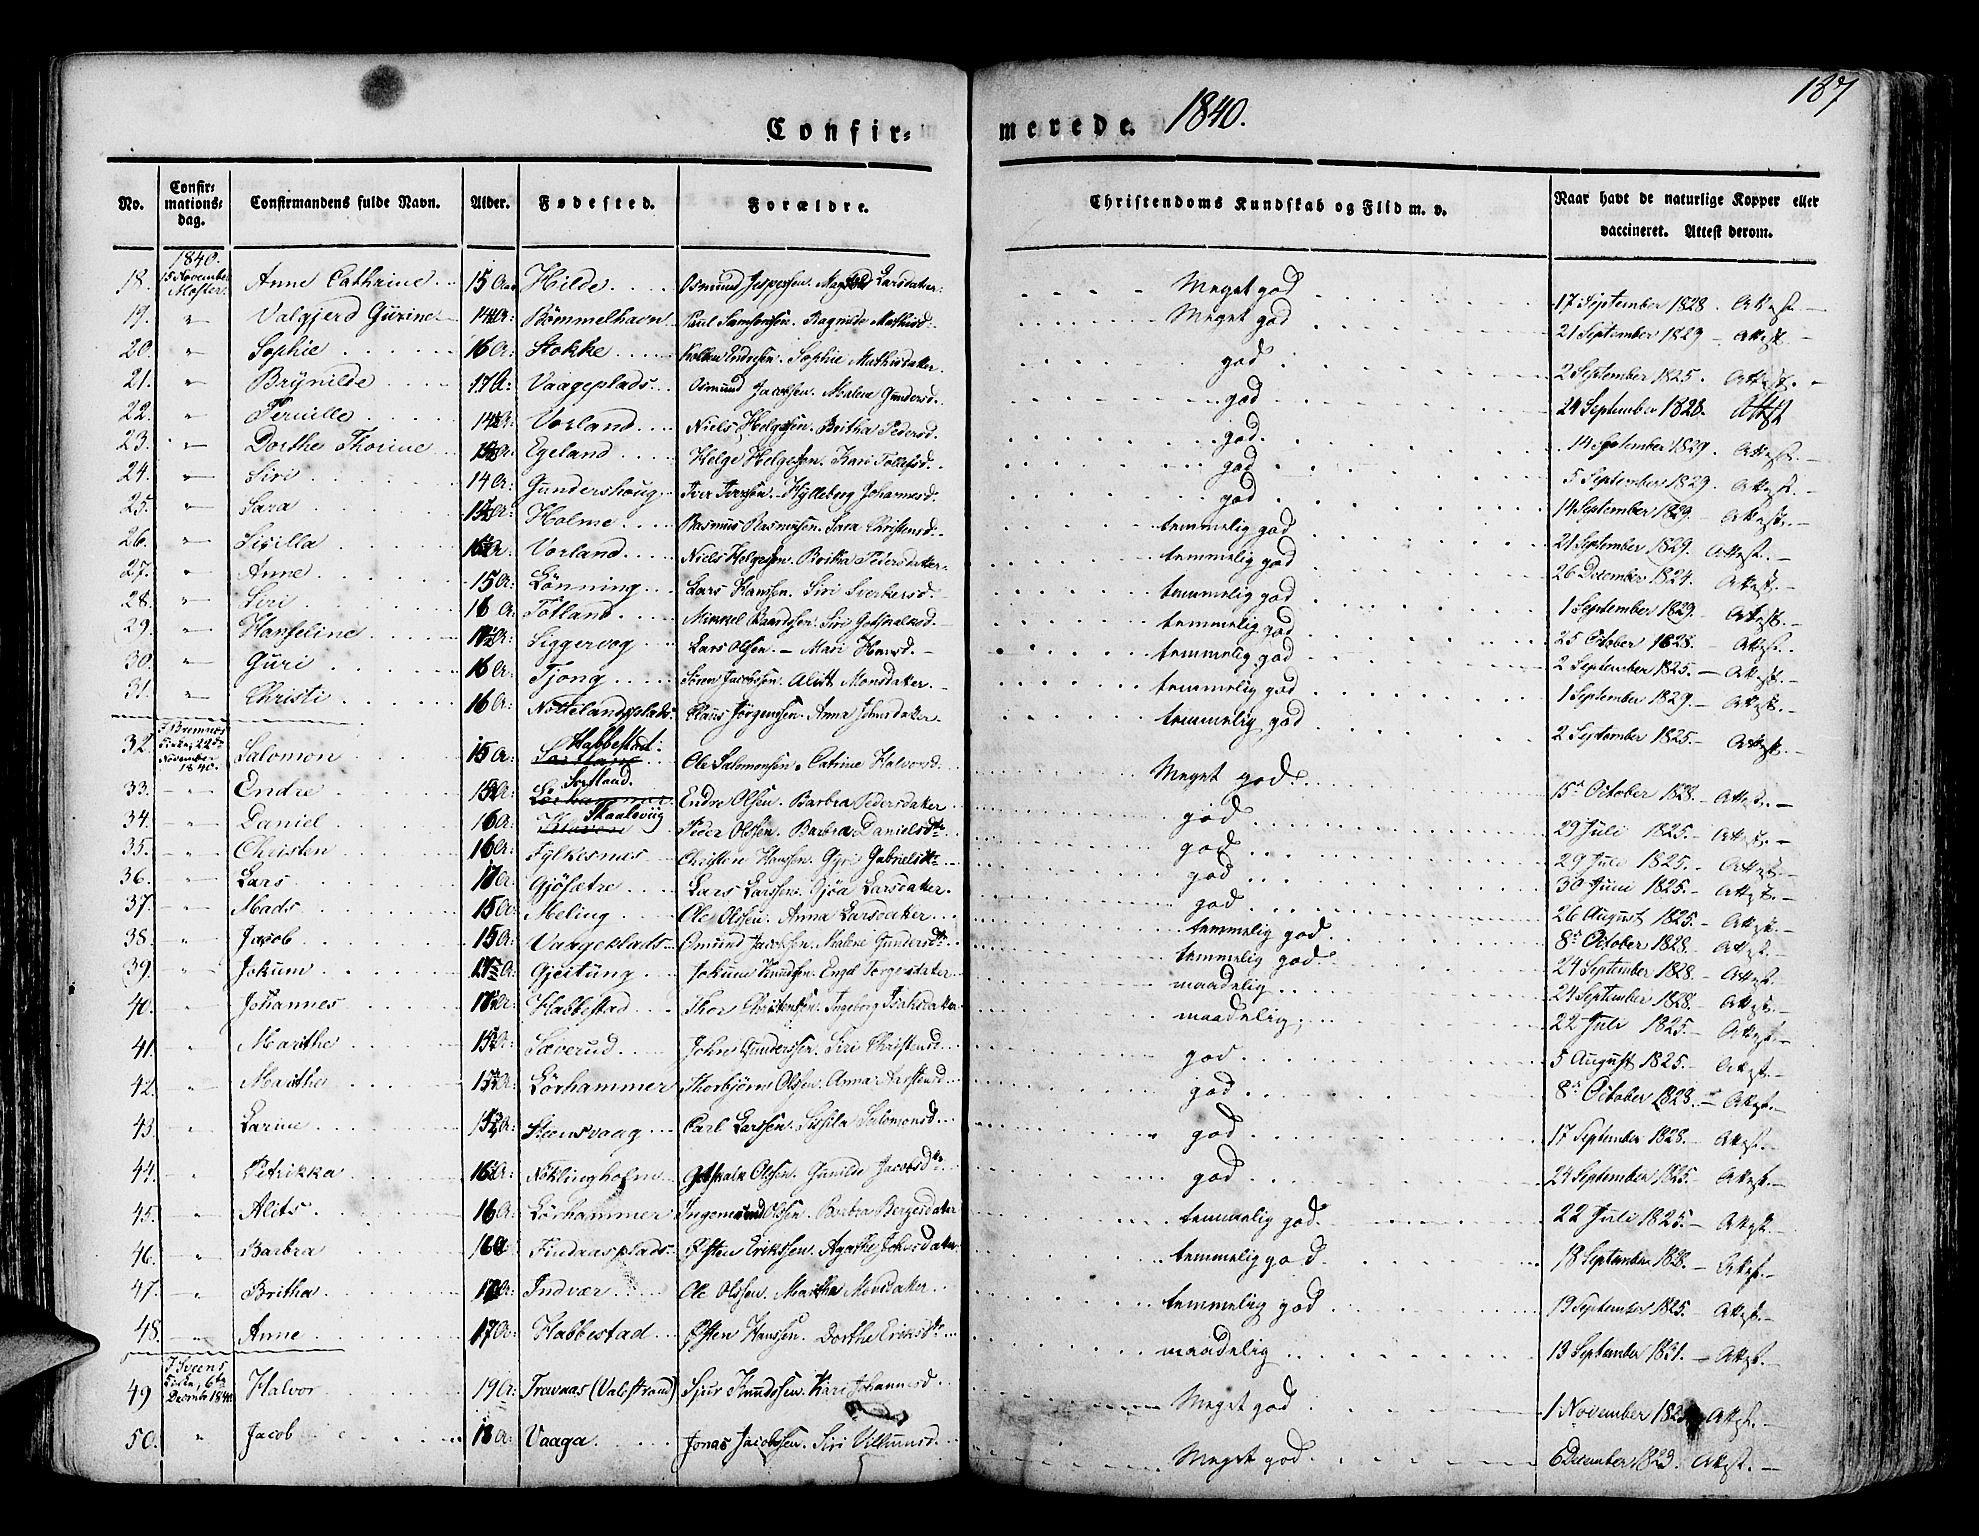 187
Confirmerede. 1840.
No. Confirmationsdag. Confirmandens fulde Navn. Alder. Fødested. Forældre. Christendoms Kundskab og Flid m. v. Naar havt de naturlige Kopper eller vaccineret. Attest derom.
1840.
18. 15 November Moster. Anne Cathrine 15 Aar Hilde Osmund Jespersen. Larsdatter. Meget god 17 September 1828. Attest
19. " Valgjerd Gurine 14 A: Bømmelhavn Paul Samsonsen. Ragnilde Mathisd. Meget god 21 September 1829 Attest
20. " Sophie 16 A: Stokke Endresen. Sophie Mathisdatter. god 2 September 1825. Attest.
21. " Brynilde 17 A: Vaageplads Osmund Jacobsen. Malene Gundersd. god 24 September 1828. Attest
22. " Pernille 14 A: Vorland Niels Helgesen. Britha Pedersd. god 14 September 1829. Attest
23. " Dorthe Thorine A: Egeland Helge Helgesen. Kari Tollefsd. god 5 September 1829. Attest.
24. " Siri 14 A: Gundershoug Iver Iversen. Hylleborg Johannesd. god 14 September 1829. Attest.
25. " Sara A: Holme Rasmus Rasmusen. Sara Christensd. temmelig god 21 September 1829. Attest.
26. " Sisilla A: Vorland Niels Helgesen. Britha Pedersdatter. temmelig god 26 December 1824. Attest.
27. " Anne 15 A: Lønning Lars Hanssen. Siri Sverkersd. temmelig god 1 September 1829. Attest.
28. " Siri 16 A: Totland Mikkel Baardsen. Siri Gotskalksd. temmelig god 25 October 1828. Attest.
29. " Hanseline A: Siggervog Lars Olsen. Mari Hansd. temmelig god 2 September 1825. Attest.
30. " Guri 16 A: Tjong Søren Jacobsen. Alitt Monsdatter. temmelig god 1 September 1829. Attest.
31. " Christi 16 A: Nottelandsplads Claus Jørgenssen. Anna Johnsdatter. temmelig god 2 September 1825. Attest.
32. I Bremnes Kirke, 22de November 1840. Salomon 15 A: Habbestad. Ole Salomonsen. Catrine Halvord. Meget god 15de October 1828. Attest.
33. " Endre 15 A: Sortland Endre Olsen. Barbra Pedersdatter god 29 Juli 1825. Attest.
34. " Daniel 16 A: Skaalevig Peder Olsen. Barbra Danielsdtr god 29 Juli 1825. Attest.
35. " Christen 16 A: Fylkesnes Christen Hansen. Gyri Gabrielsdtr god 30 Juni 1825. Attest.
36. " Lars 17 A: Gjøsætre Lars Larssen. Gjøa Larsdatter. god 26 August 1825. Attest.
37. " Mads 15 A: Meling Ole Olsen. Anna Larsdatter temmelig god 8de October 1828. Attest.
38. " Jacob 15 A: Vaageplads Osmund Jacobsen. Malene Gundersdtr temmelig god. 24 September 1828. Attest.
39. " Jokum A: Gjeitung Jokum Knudsen. Engel Torgersdatter maadelig 24 September 1828. Attest.
40. " Johannes A: Habbestad Thor Christensen. Ingeborg Isaksdatter maadelig 22 Juli 1825. Attest.
41. " Marithe 15 A: Sæverud John Gundersen. Siri Christend. god 5 August 1825. Attest.
42. " Marithe 15 A: Lørhammer Thorbjørn Olsen. Anna Aarstensd. god 8de October 1828. Attest.
43. " Larine 15 A: Steensvaag Carl Larssen. Sissila Salomonsd. god 17 September 1828. Attest.
44. " Petrikka 16 A: Nøklingholm Gotskalk Olsen. Gunilde Jacobsdtr god 24 September 1825. Attest.
45. " Alits 16 A: Lørhammer Ingemund Olsen. Barbra Børgesdatter temmelig god. 22 Juli 1825. Attest.
46. " Barbra 16 A Findaasplads Østen Erikssen. Agathe Johnsdatter temmelig god. 18 September 1828. Attest.
47. " Britha A: Indvær Ole Olsen. Martha Monsdatter temmelig god 19 September 1825. Attest.
48. " Anne 17 A: Habbestad Østen Hanssen. Dorthe Eriksdtr maadelig 13 September 1831. Attest.
49 I Sveens Kirke, 6te December 1840. Halvor 19 A: Travaas (Valestrand) Sjur Knudsen. Kari Johannesd. Meget god 1 November Attest.
50. " Jacob 18 A: Vaaga. Jonas Jacobsen. Siri Villumsd. Meget god 6 December 1823. Attest.